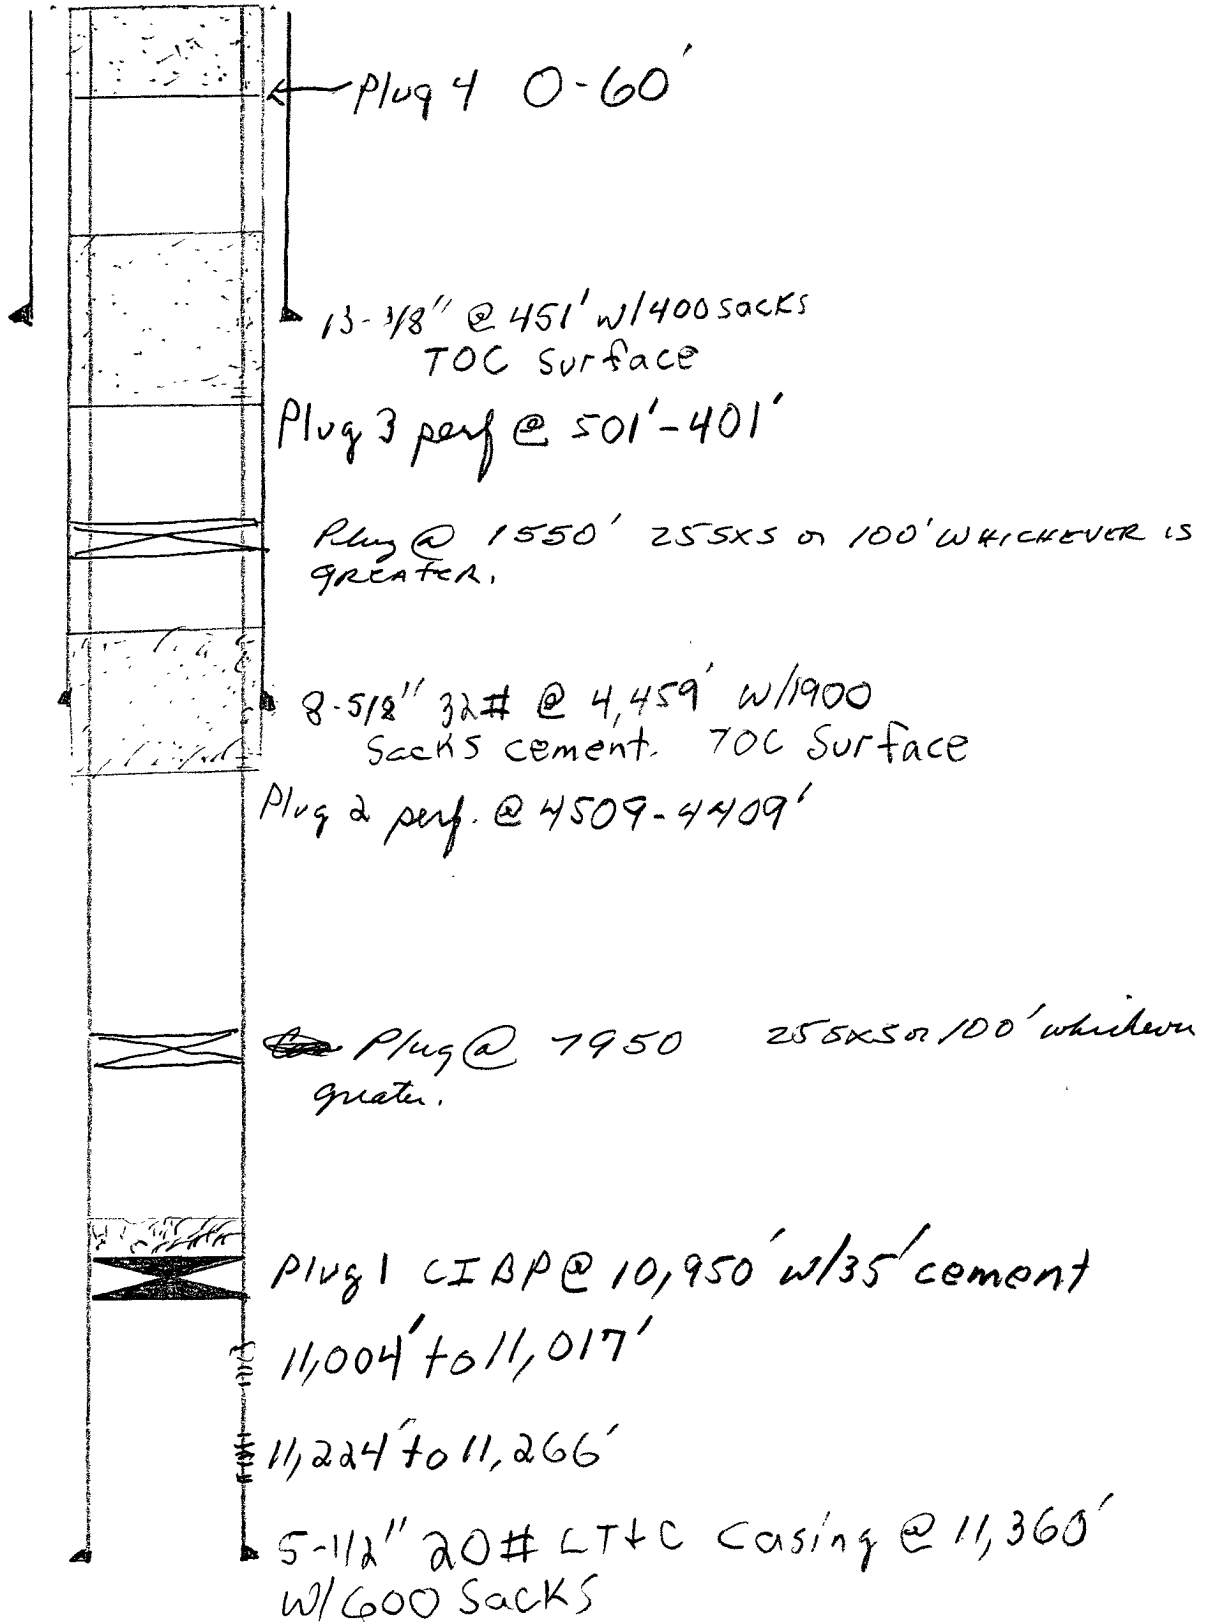 Plug 4 0-60'
13-3/8" @ 451' w/400 sacks
TOC Surface
Plug 3 perf @ 501'-401'
Plug @ 1550' 25 SXS or 100' WHICHEVER IS
GREATER.
8-5/8" 32# @ 4,459' W/1900
Sacks cement. TOC Surface
Plug 2 perf. @ 4509-4409'
Plug @ 7950 25 SXS or 100' whichever
greater.
Plug 1 CIBP @ 10,950' w/35' cement
11,004' to 11,017'
11,224' to 11,266'
5-1/2" 20# LT+C Casing @ 11,360'
W/600 Sacks